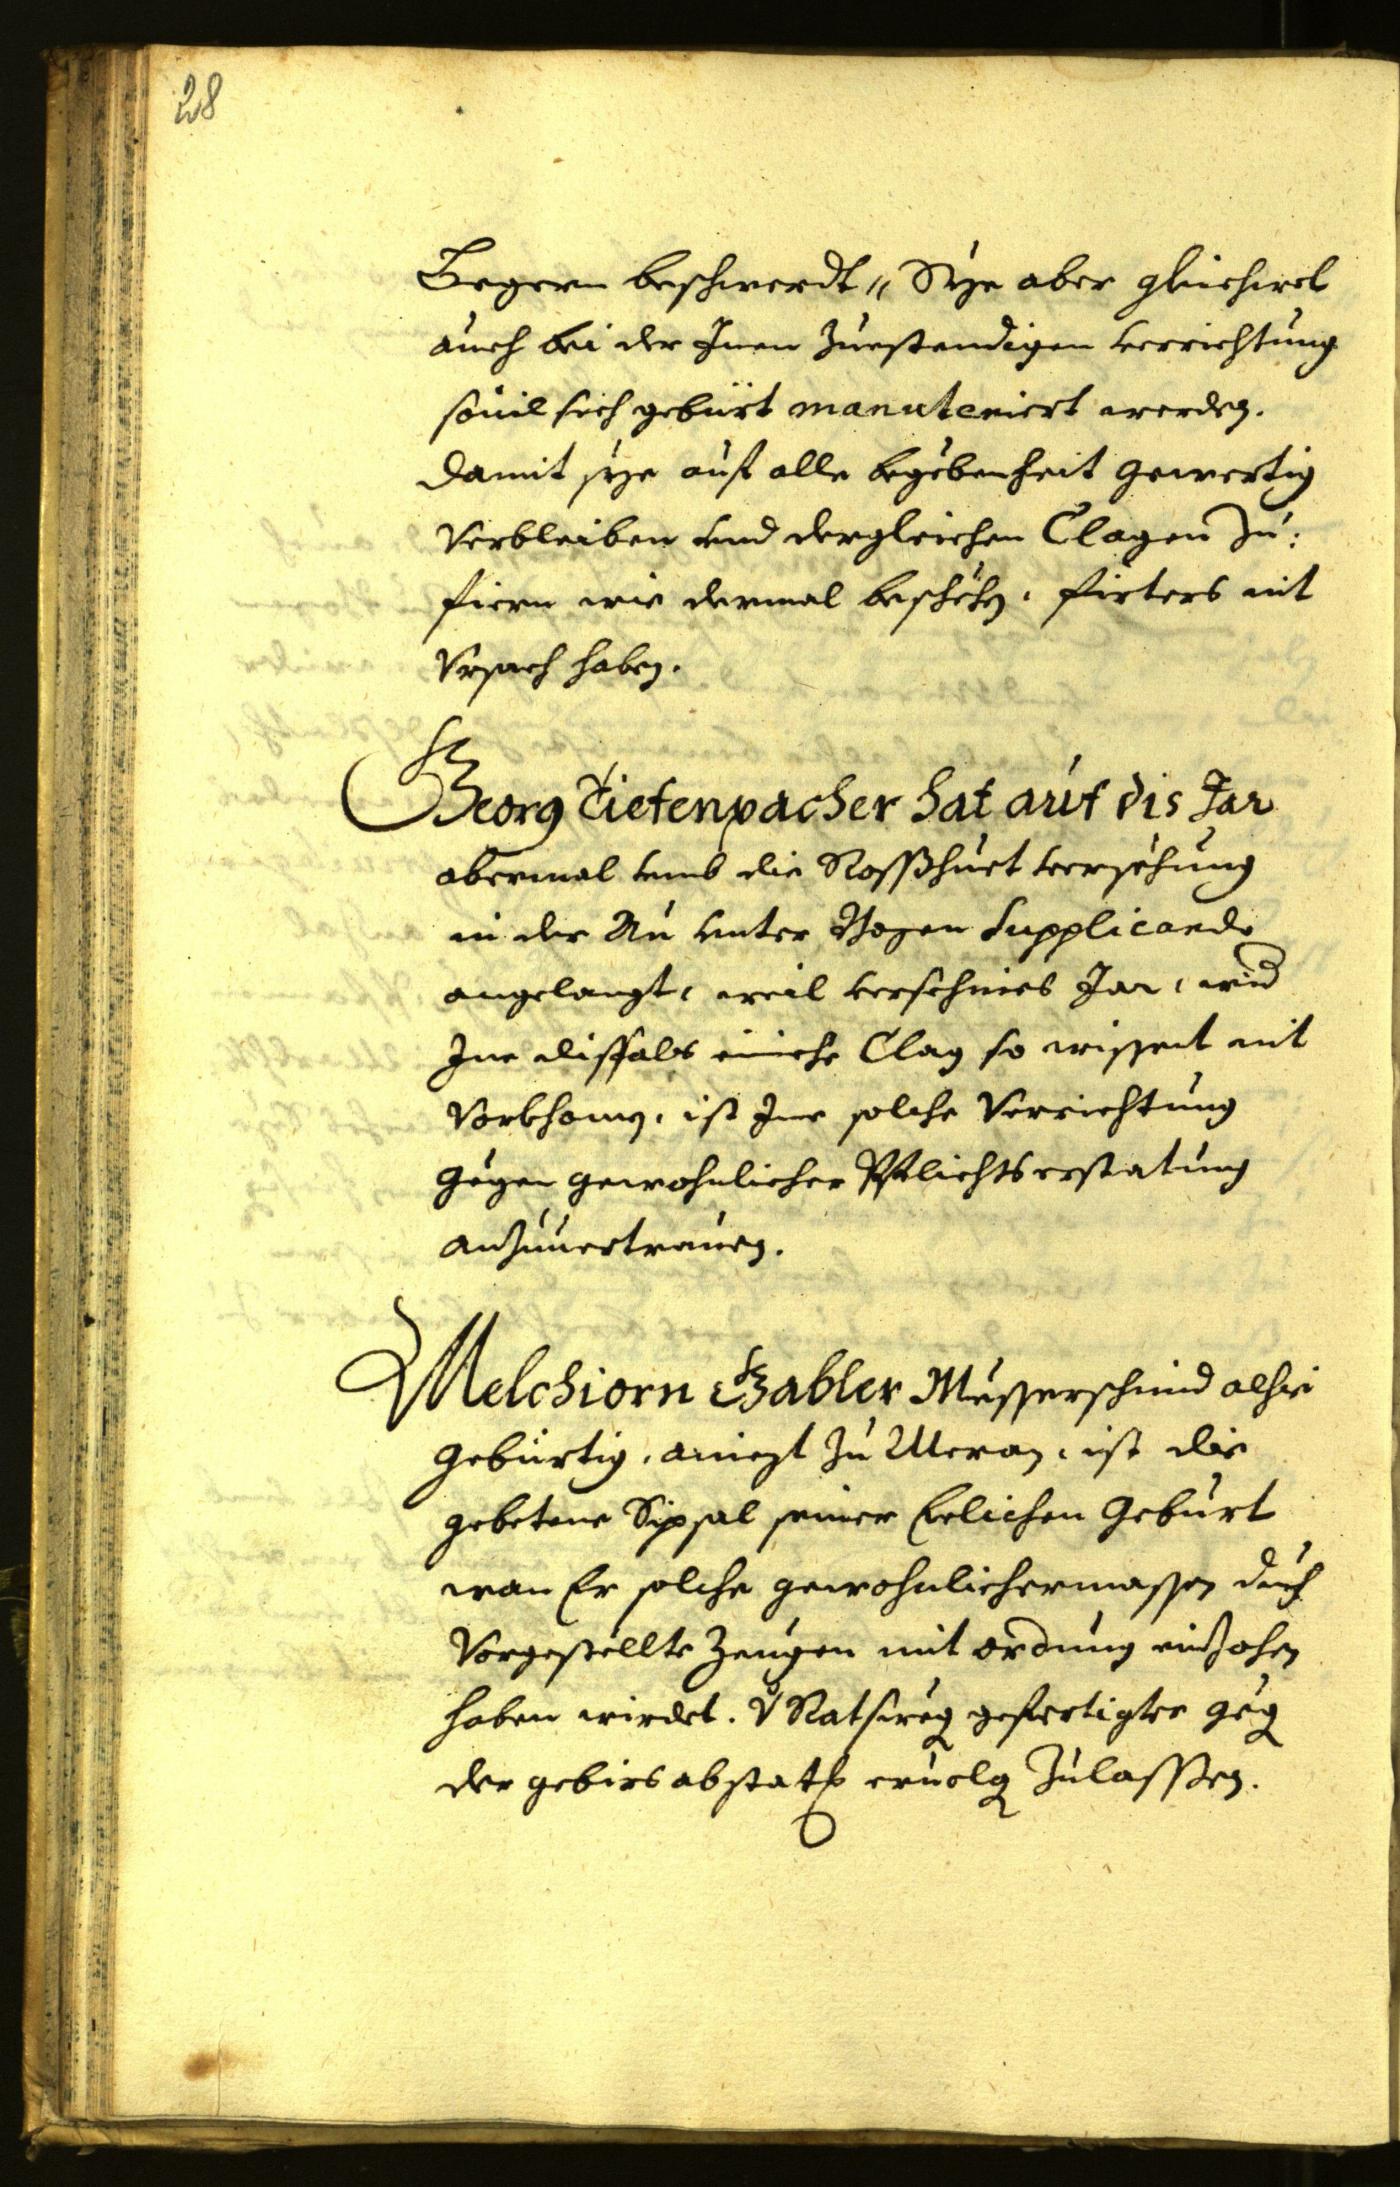 28
Gegern beschwerdt, Sÿe aber gleichwol
auch bei der Inen zuestendigen verrichtung
souil sich gebürt manuteniert werden.
damit sÿe auf alle begebenheit gewertig
verbleiben vnd dergleichen Clagen zu:
fiern wie dermal beschehen, firters nit
Vrsach haben.
Georg Tiefenpacher hat auf dis Jar
abermal vmb die Rosßhuet versehung
in der Au vnter Bozen Supplicando
angelangt, weil verschines Jar, wid
Ine disfals einiche Clag so wissent nit
Vorkhomen, ist Ime solche Verrichtung
gegen gewohnlicher Pflichts erstatung
anzuuertrauen.
Melchiorn Gabler Messerschmid alhie
gebürtig, aniezt zu Meran, ist die
gebetene Sipsal seiner Eelichen Geburt
wan Er solche gewohnlichermassen durch
Vorgestellte Zeugen mit ordnung einzohen
haben wirdet. Ratswegen gefertigter gegen
der gebirs abstatt eruolgen zulassen.